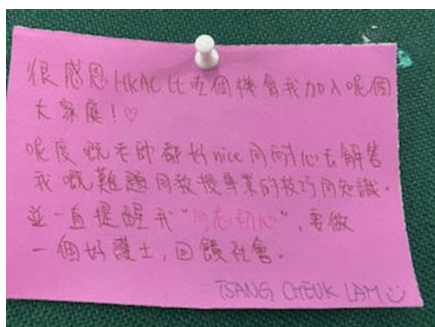 很感恩 HKAC 比咗個機會我加入呢個
大家庭！♡
呢度嘅老師都好nice同耐心去解答
我嘅難題同教授專業的技巧同知識．
並一直提醒我“勿忘初心”，要做
一個好護士，回饋社會。
TSANG CHEUK LAM